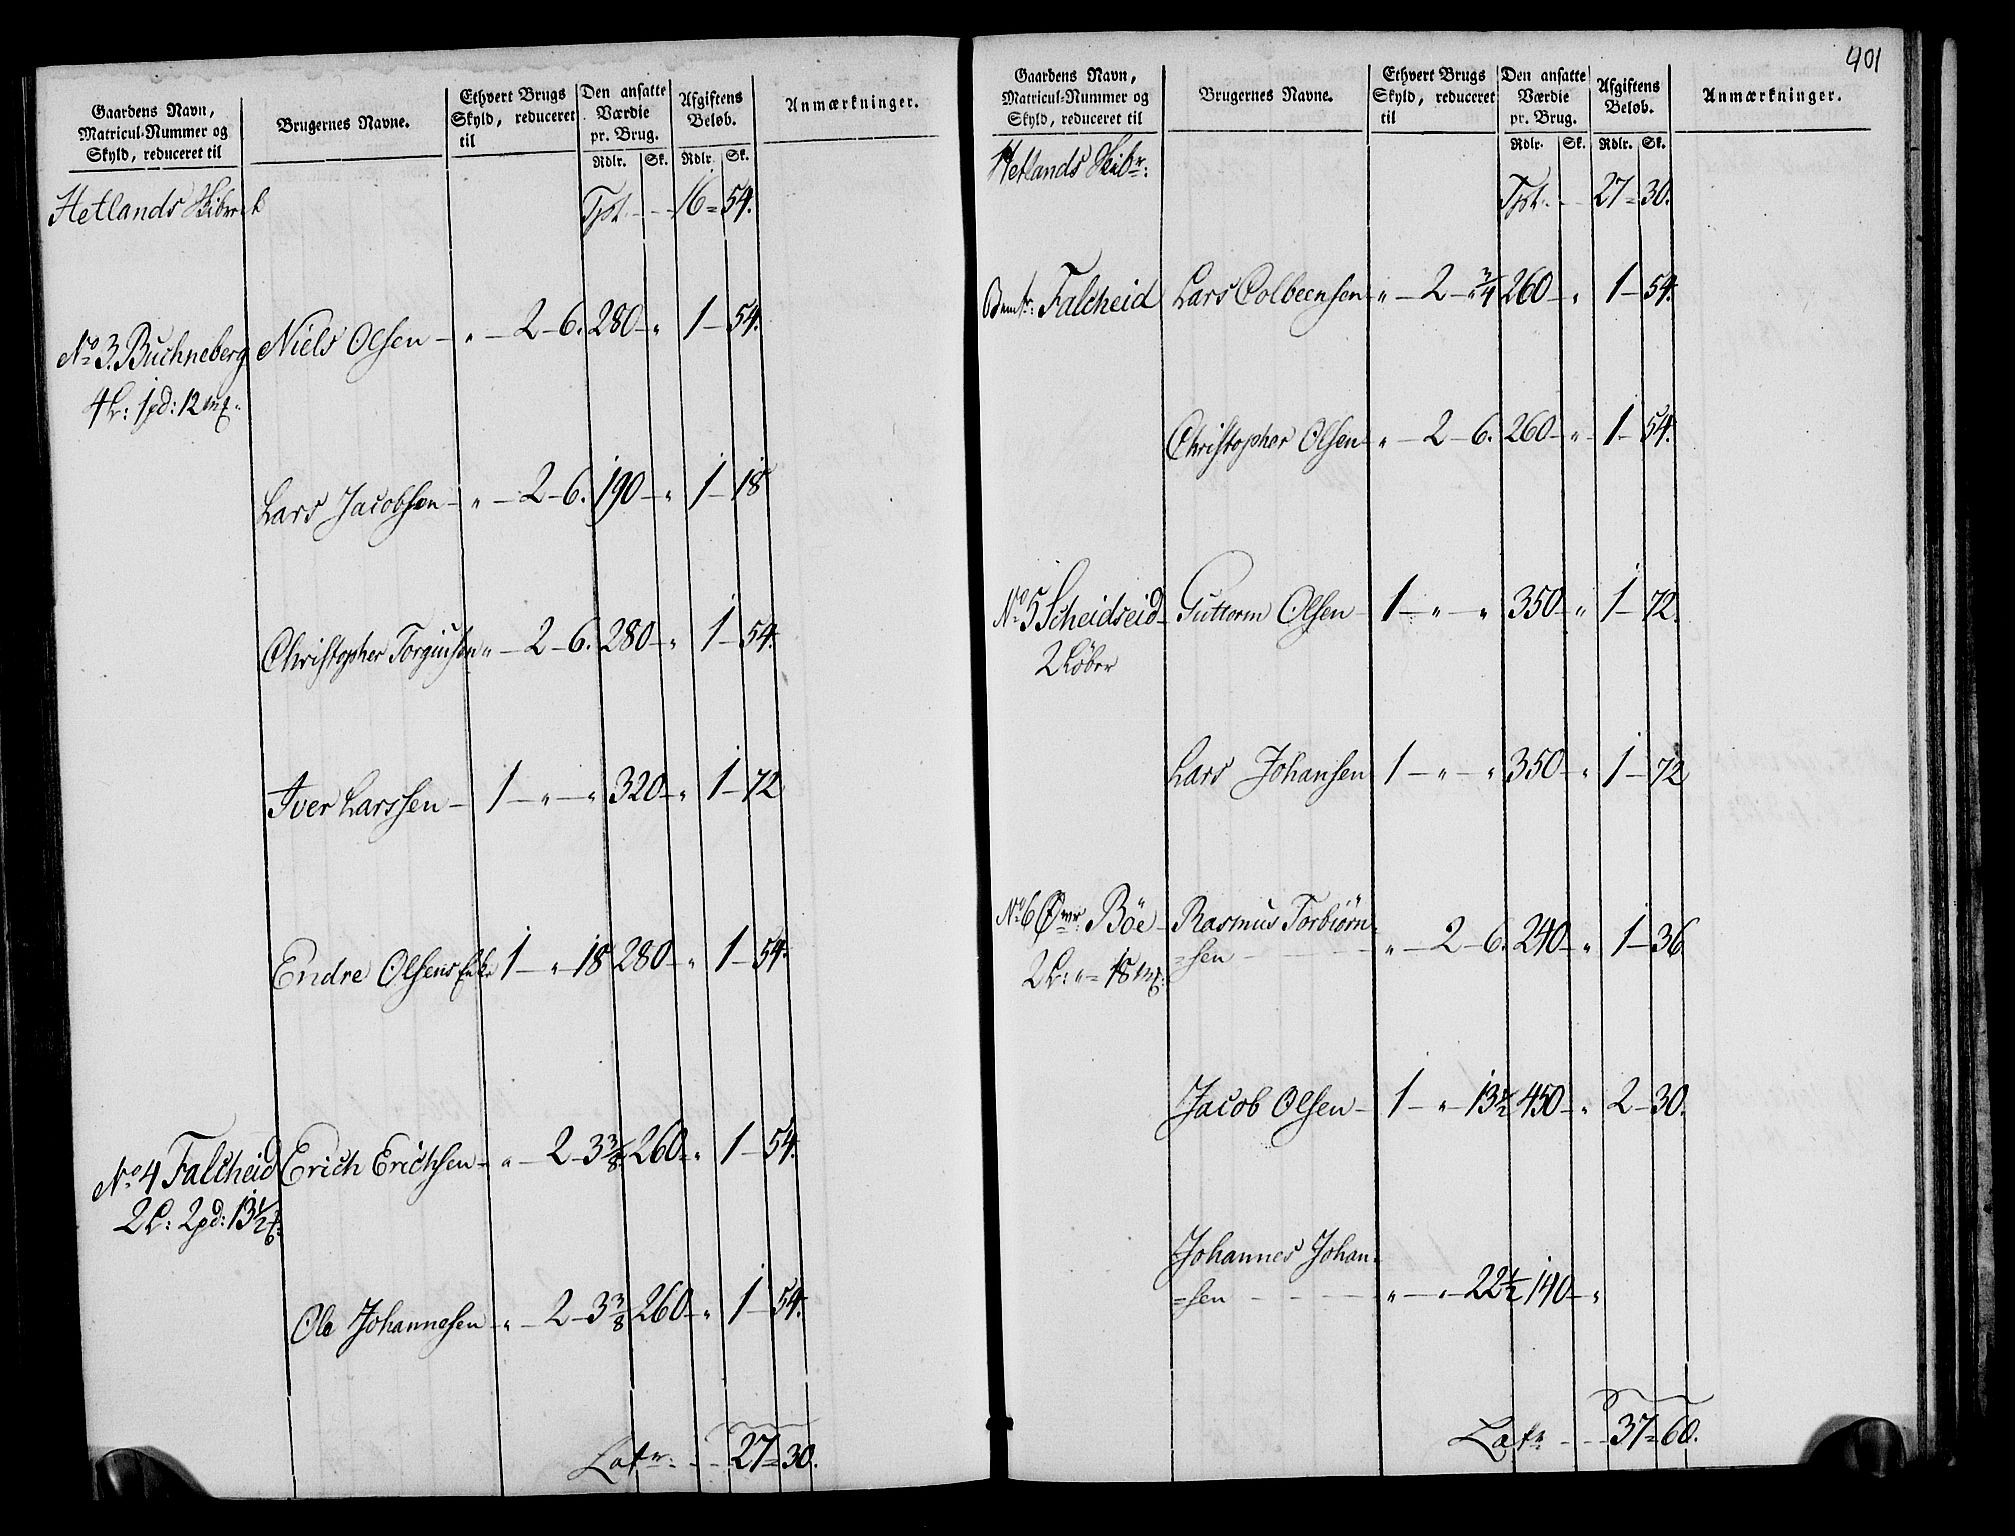 Gaardens Navn,
Matricul-Nummer og
Skyld, reduceret til
Brugernes Navne.
Ethvert Brugs
Skyld, reduceret
til
Den ansatte
Værdie
pr. Brug.
Rdlr. Sk.
Afgiftens
Beløb.
Rdlr. Sk.
Anmærkninger.
Hetlands Skibr.
Tpt. - - 16 = 54.
No 3. Buchneberg Niels Olsen — „ — 2 — 6. 280 — „ 1 — 54.
4 L: 1 pd: 12 mk.
Lars Jacobsen — „ — 2 — 6. 190 — „ 1 — 18
Christopher Torgiusen „ — 2 — 6. 280 — „ 1 — 54.
Iver Larssen — 1 — „ — „ 320 — „ 1 — 72
Endre Olsens Enke 1 — „ — 18 280 — „ 1 — 54.
No 4 Falcheid Erich Erichsen — „ — 2 — 3 3/8 260 — „ 1 — 54.
2 L: 2 pd: 13 1/2
Ole Johannesen — „ — 2 — 3 3/8 260 — „ 1 — 54.
Latr: - - 27 = 30.
401
Gaardens Navn,
Matricul-Nummer og
Skyld, reduceret til
Brugernes Navne.
Ethvert Brugs
Skyld, reduceret
til
Den ansatte
Værdie
pr. Brug.
Rdlr. Sk.
Afgiftens
Beløb.
Rdlr. Sk.
Anmærkninger.
Hetlands Skibr:
Tpt. - - 27 = 30.
Falcheid Lars Colbeensen — „ — 2 — „ 3/4 260 — „ 1 — 54.
Christopher Olsen — „ — 2 — 6. 260 — „ 1 — 54.
No 5 Scheidseid — Guttorm Olsen — 1 — „ — „ 350 — „ 1 — 72.
2 Løber
Lars Johansen 1 — „ — „ 350 — „ 1 — 72
No 6 Øvr Bøe — Rasmus Torbiørn=
=sen - - - „ — 2 — 6. 240 — „ 1 — 36
2 L: „ = 18 mk:
Jacob Olsen — 1 — „ — 13 1/2 450 — „ 2 — 30.
Johannes Johan=
=sen - - - „ — „ — 22 1/2 140 — „
Latr - - 37 = 60.